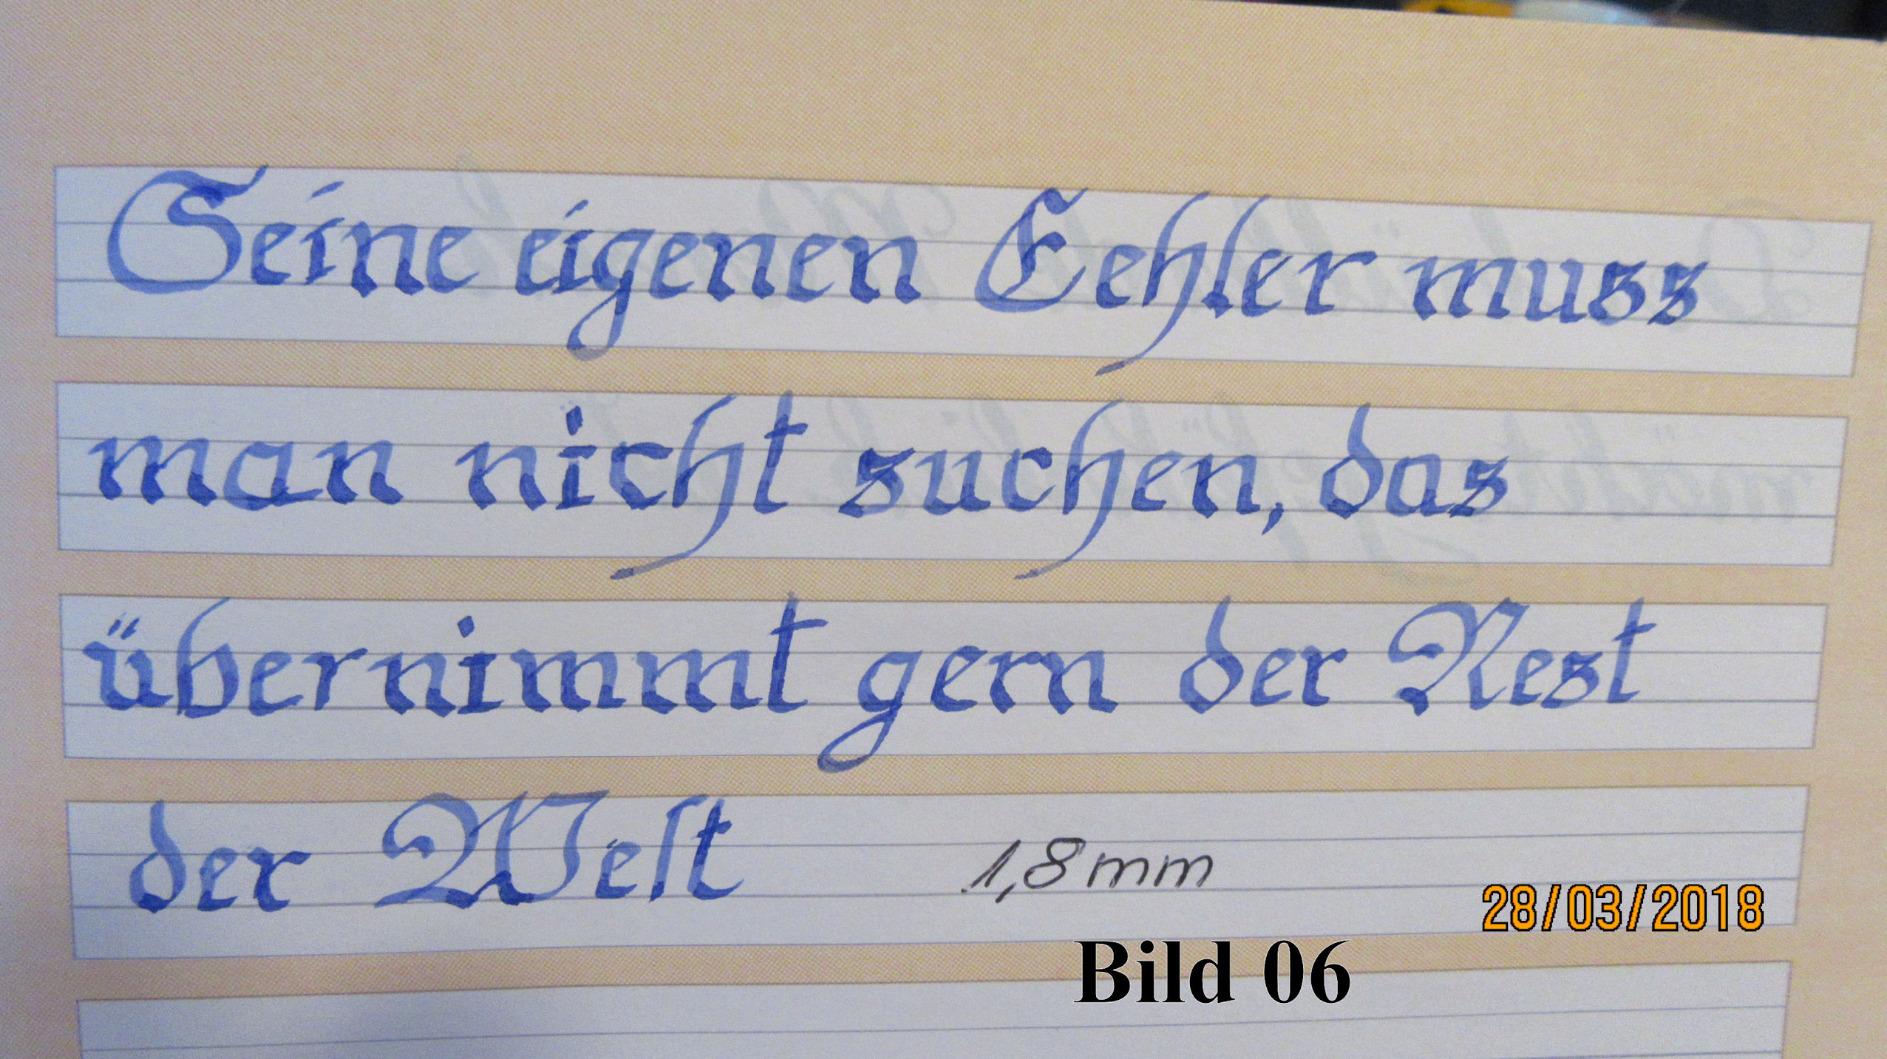 Seine eigenen Fehler muss
man nicht suchen, das
übernimmt gern der Rest
der Welt
1,8 mm
28/03/2018
Bild 06